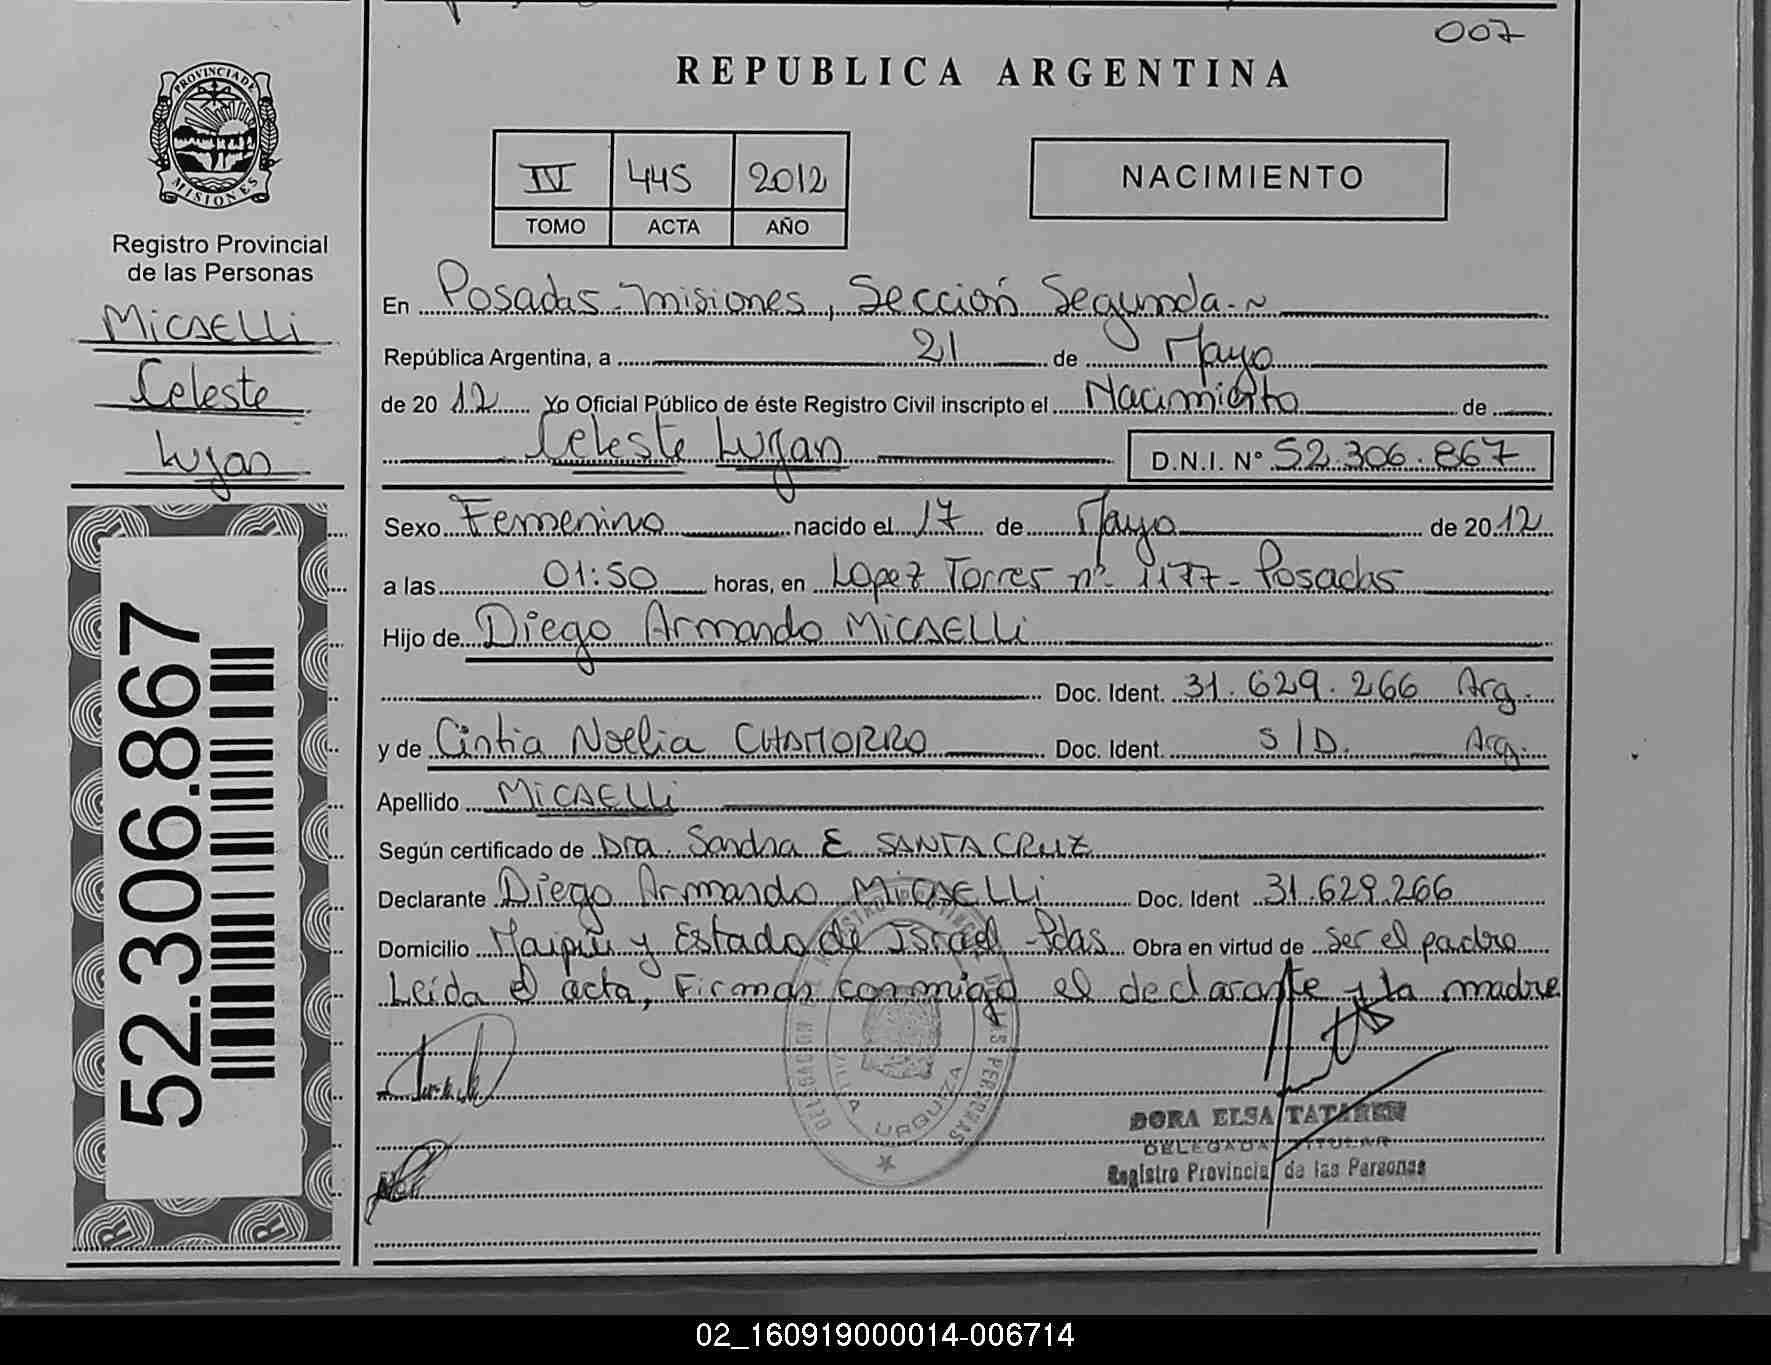 007
REPUBLICA ARGENTINA
PROVINCIA DE
MISIONES
Registro Provincial
de las Personas
MICAELLi
Celeste
Lujan
IV 445 2012
TOMO ACTA AÑO
NACIMIENTO
En Posadas-Misiones, Sección Segunda-~
República Argentina, a 21 de Mayo
de 2012 Yo Oficial Público de éste Registro Civil inscripto el Nacimiento de
Celeste Lujan D.N.I. N° 52.306.867
Sexo Femenino nacido el 17 de Mayo de 2012
a las 01:50 horas, en Lopez Torres nº 1177- Posadas
Hijo de Diego Armando MICAELLi
Doc. Ident. 31.629.266 Arg.
y de Cintia Noelia CHAMORRO Doc. Ident. S/D. Arg.
Apellido MICAELLi
Según certificado de Dra. Sandra E SANTA CRUZ
Declarante Diego Armando MICAELLi Doc. Ident 31.629.266
Domicilio Maipú y Estado de Israel -Pdas Obra en virtud de ser el padre
Leída el acta, Firman conmigo el declarante y la madre
52.306.867
VILLA URQUIZA
DORA ELSA TATAREN
DELEGADA TITULAR
Registro Provincial de las Personas
02_160919000014-006714